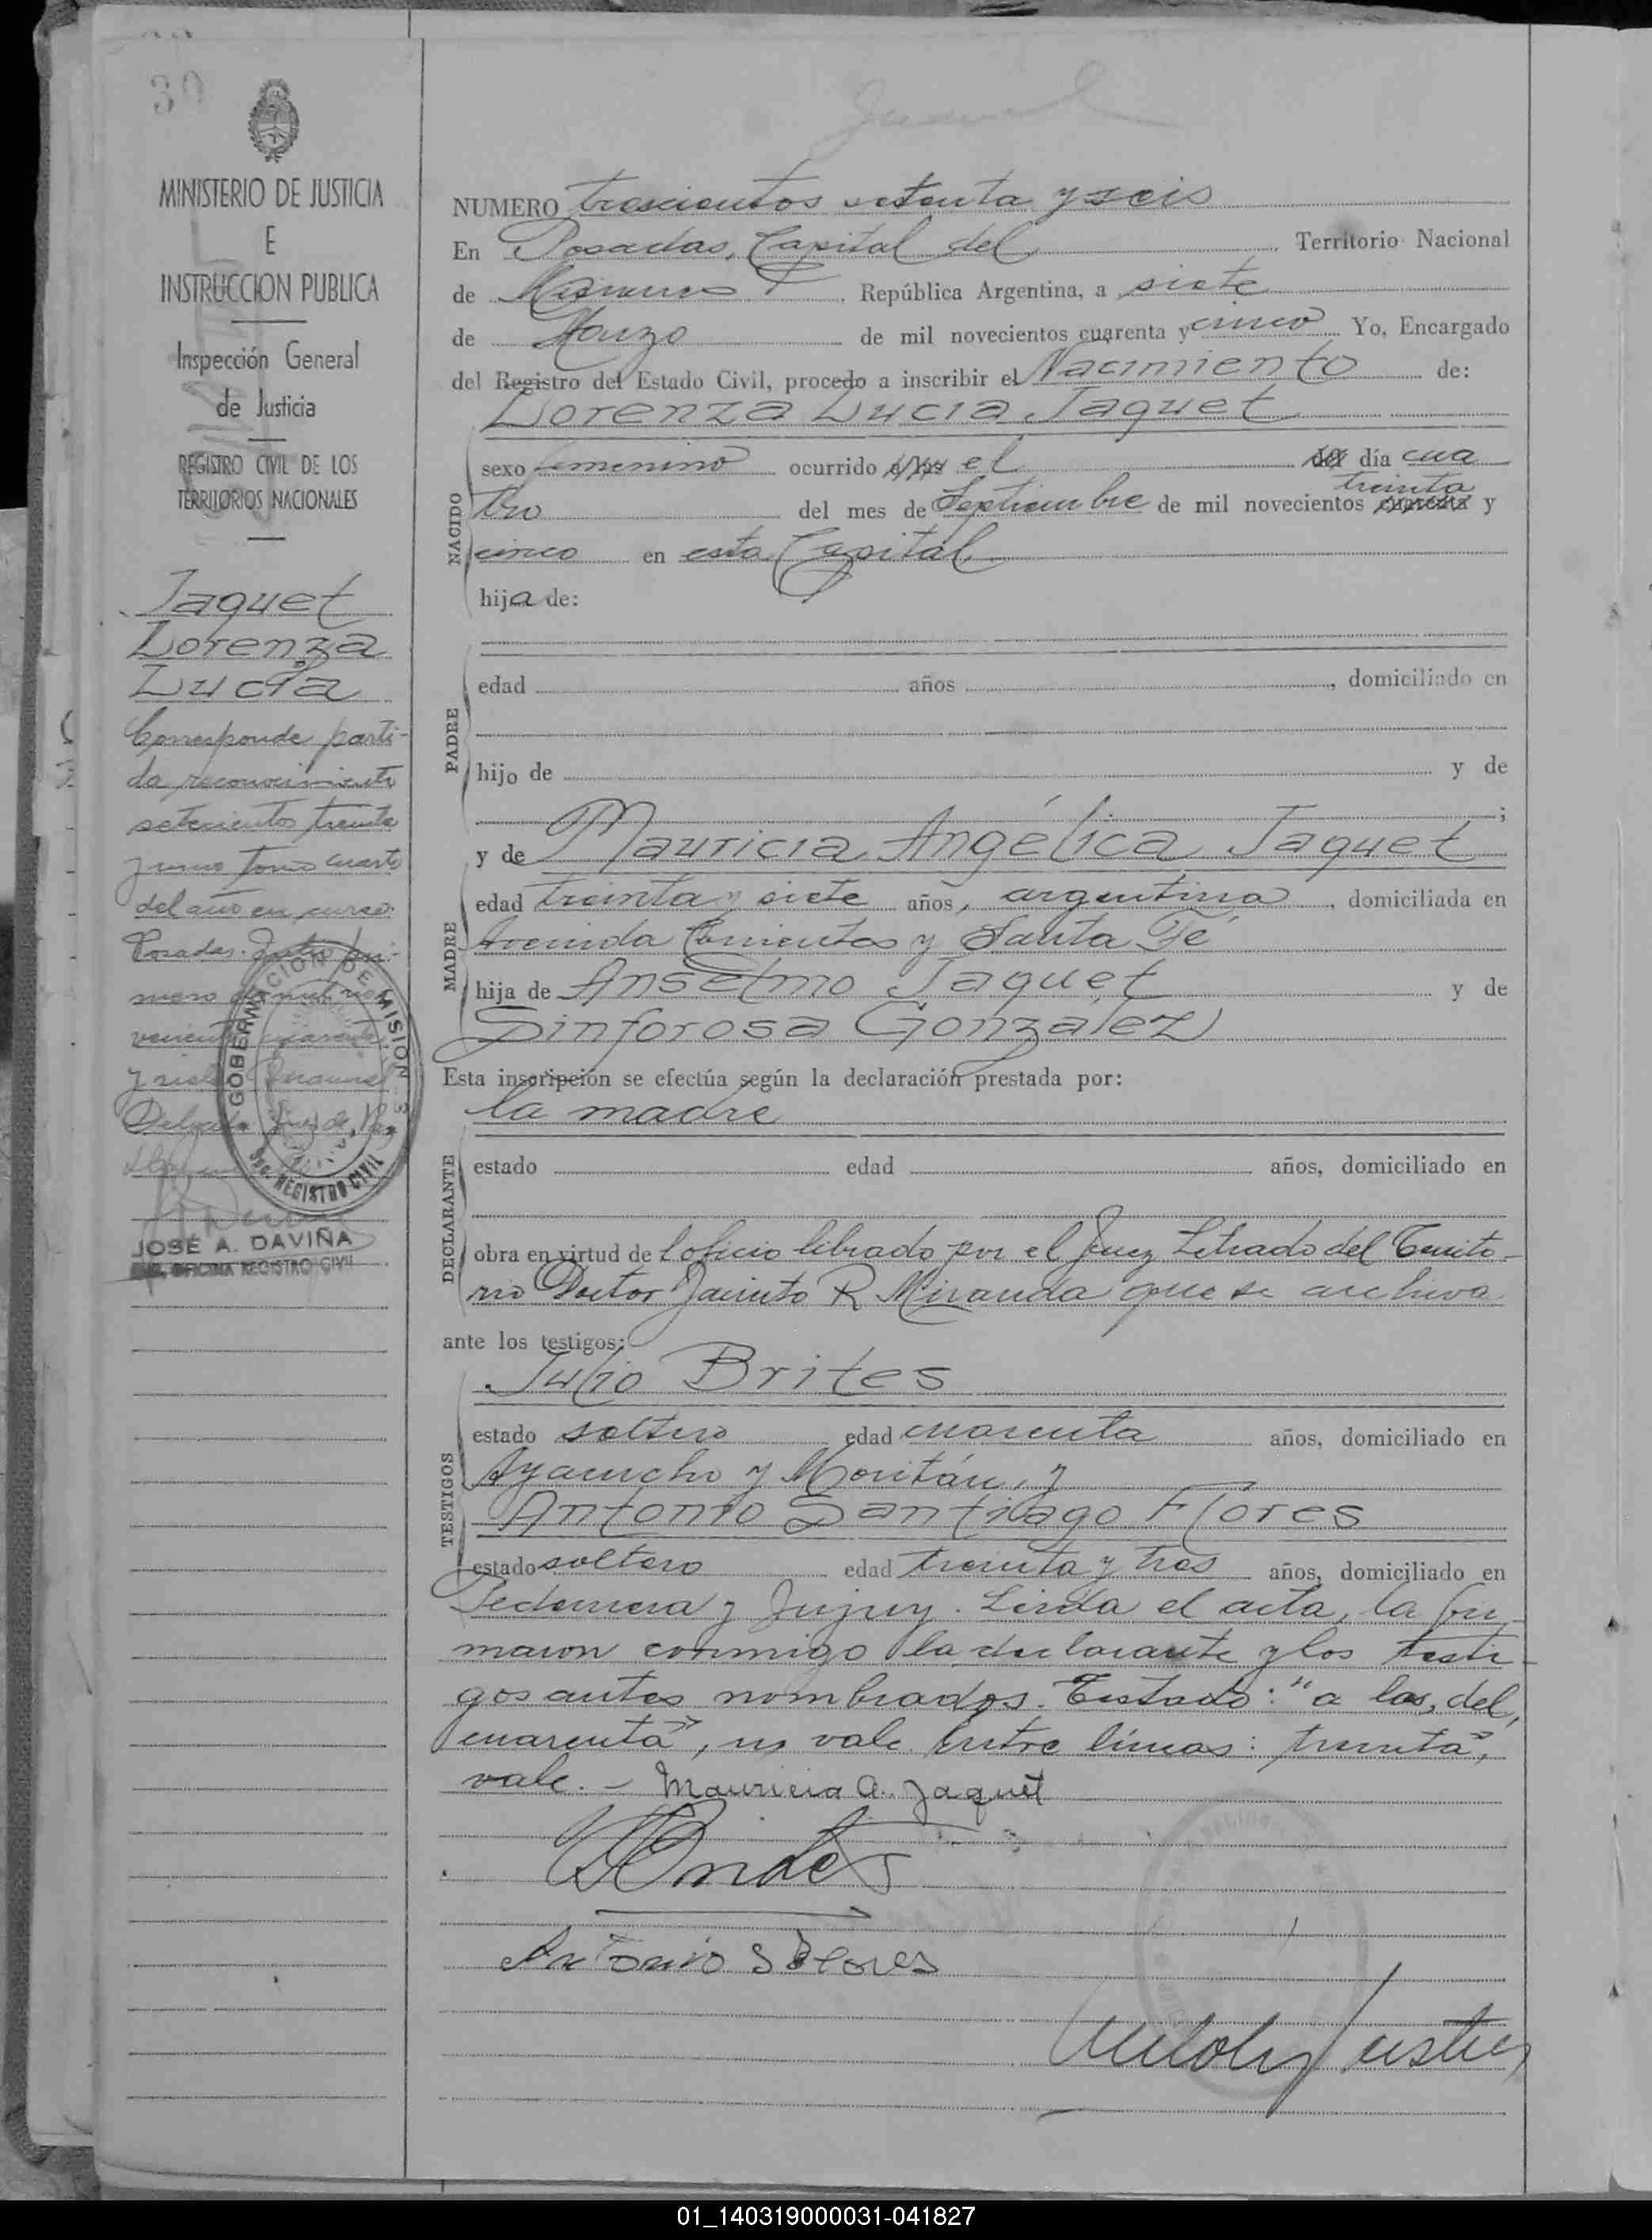 30
MINISTERIO DE JUSTICIA
E
INSTRUCCION PUBLICA
Inspección General
de Justicia
REGISTRO CIVIL DE LOS
TERRITORIOS NACIONALES
Jaquet
Lorenza
Lucía
Corresponde parti-
da reconocimiento
setecientos treinta
y uno Tomo cuarto
del año en curso.
Posadas. Julio pri-
mero de mil no-
vecientos cuarenta
y siete
Delgado Juez de Paz
GOBERNACION DE MISIONES
REGISTRO CIVIL
JOSÉ A. DAVIÑA
OFICINA REGISTRO CIVIL
NUMERO trescientos setenta y seis
En Posadas, Capital del Territorio Nacional
de Misiones, República Argentina, a siete
de Marzo de mil novecientos cuarenta y cinco Yo, Encargado
del Registro del Estado Civil, procedo a inscribir el Nacimiento de:
Lorenza Lucia Jaquet
NACIDO
sexo femenino ocurrido a las el del día cua
treinta
tro del mes de Septiembre de mil novecientos cuarenta y
cinco en esta Capital
hija de:
PADRE
edad años, domiciliado en
hijo de y de
;
MADRE
y de Mauricia Angélica Jaquet
edad treinta y siete años, argentina, domiciliada en
Avenida Corrientes y Santa Fé
hija de Anselmo Jaquet y de
Sinforosa Gonzalez
Esta inscripción se efectúa según la declaración prestada por:
la madre
DECLARANTE
estado edad años, domiciliado en
obra en virtud de l oficio librado por el Juez Letrado del Territo-
rio Doctor Jacinto R. Miranda que se archiva
ante los testigos:
Julio Brites
TESTIGOS
estado soltero edad cuarenta años, domiciliado en
Ayacucho y Moritán, y
Antonio Santiago Flores
estado soltero edad treinta y tres años, domiciliado en
Pedernera y Jujuy. Leída el acta, la fir-
maron conmigo la declarante y los testi-
gos antes nombrados. Testado: "a las, del,
cuarenta", no vale. Entre líneas: treinta",
vale. - Mauricia A. Jaquet
Antonio S Flores
01_140319000031-041827